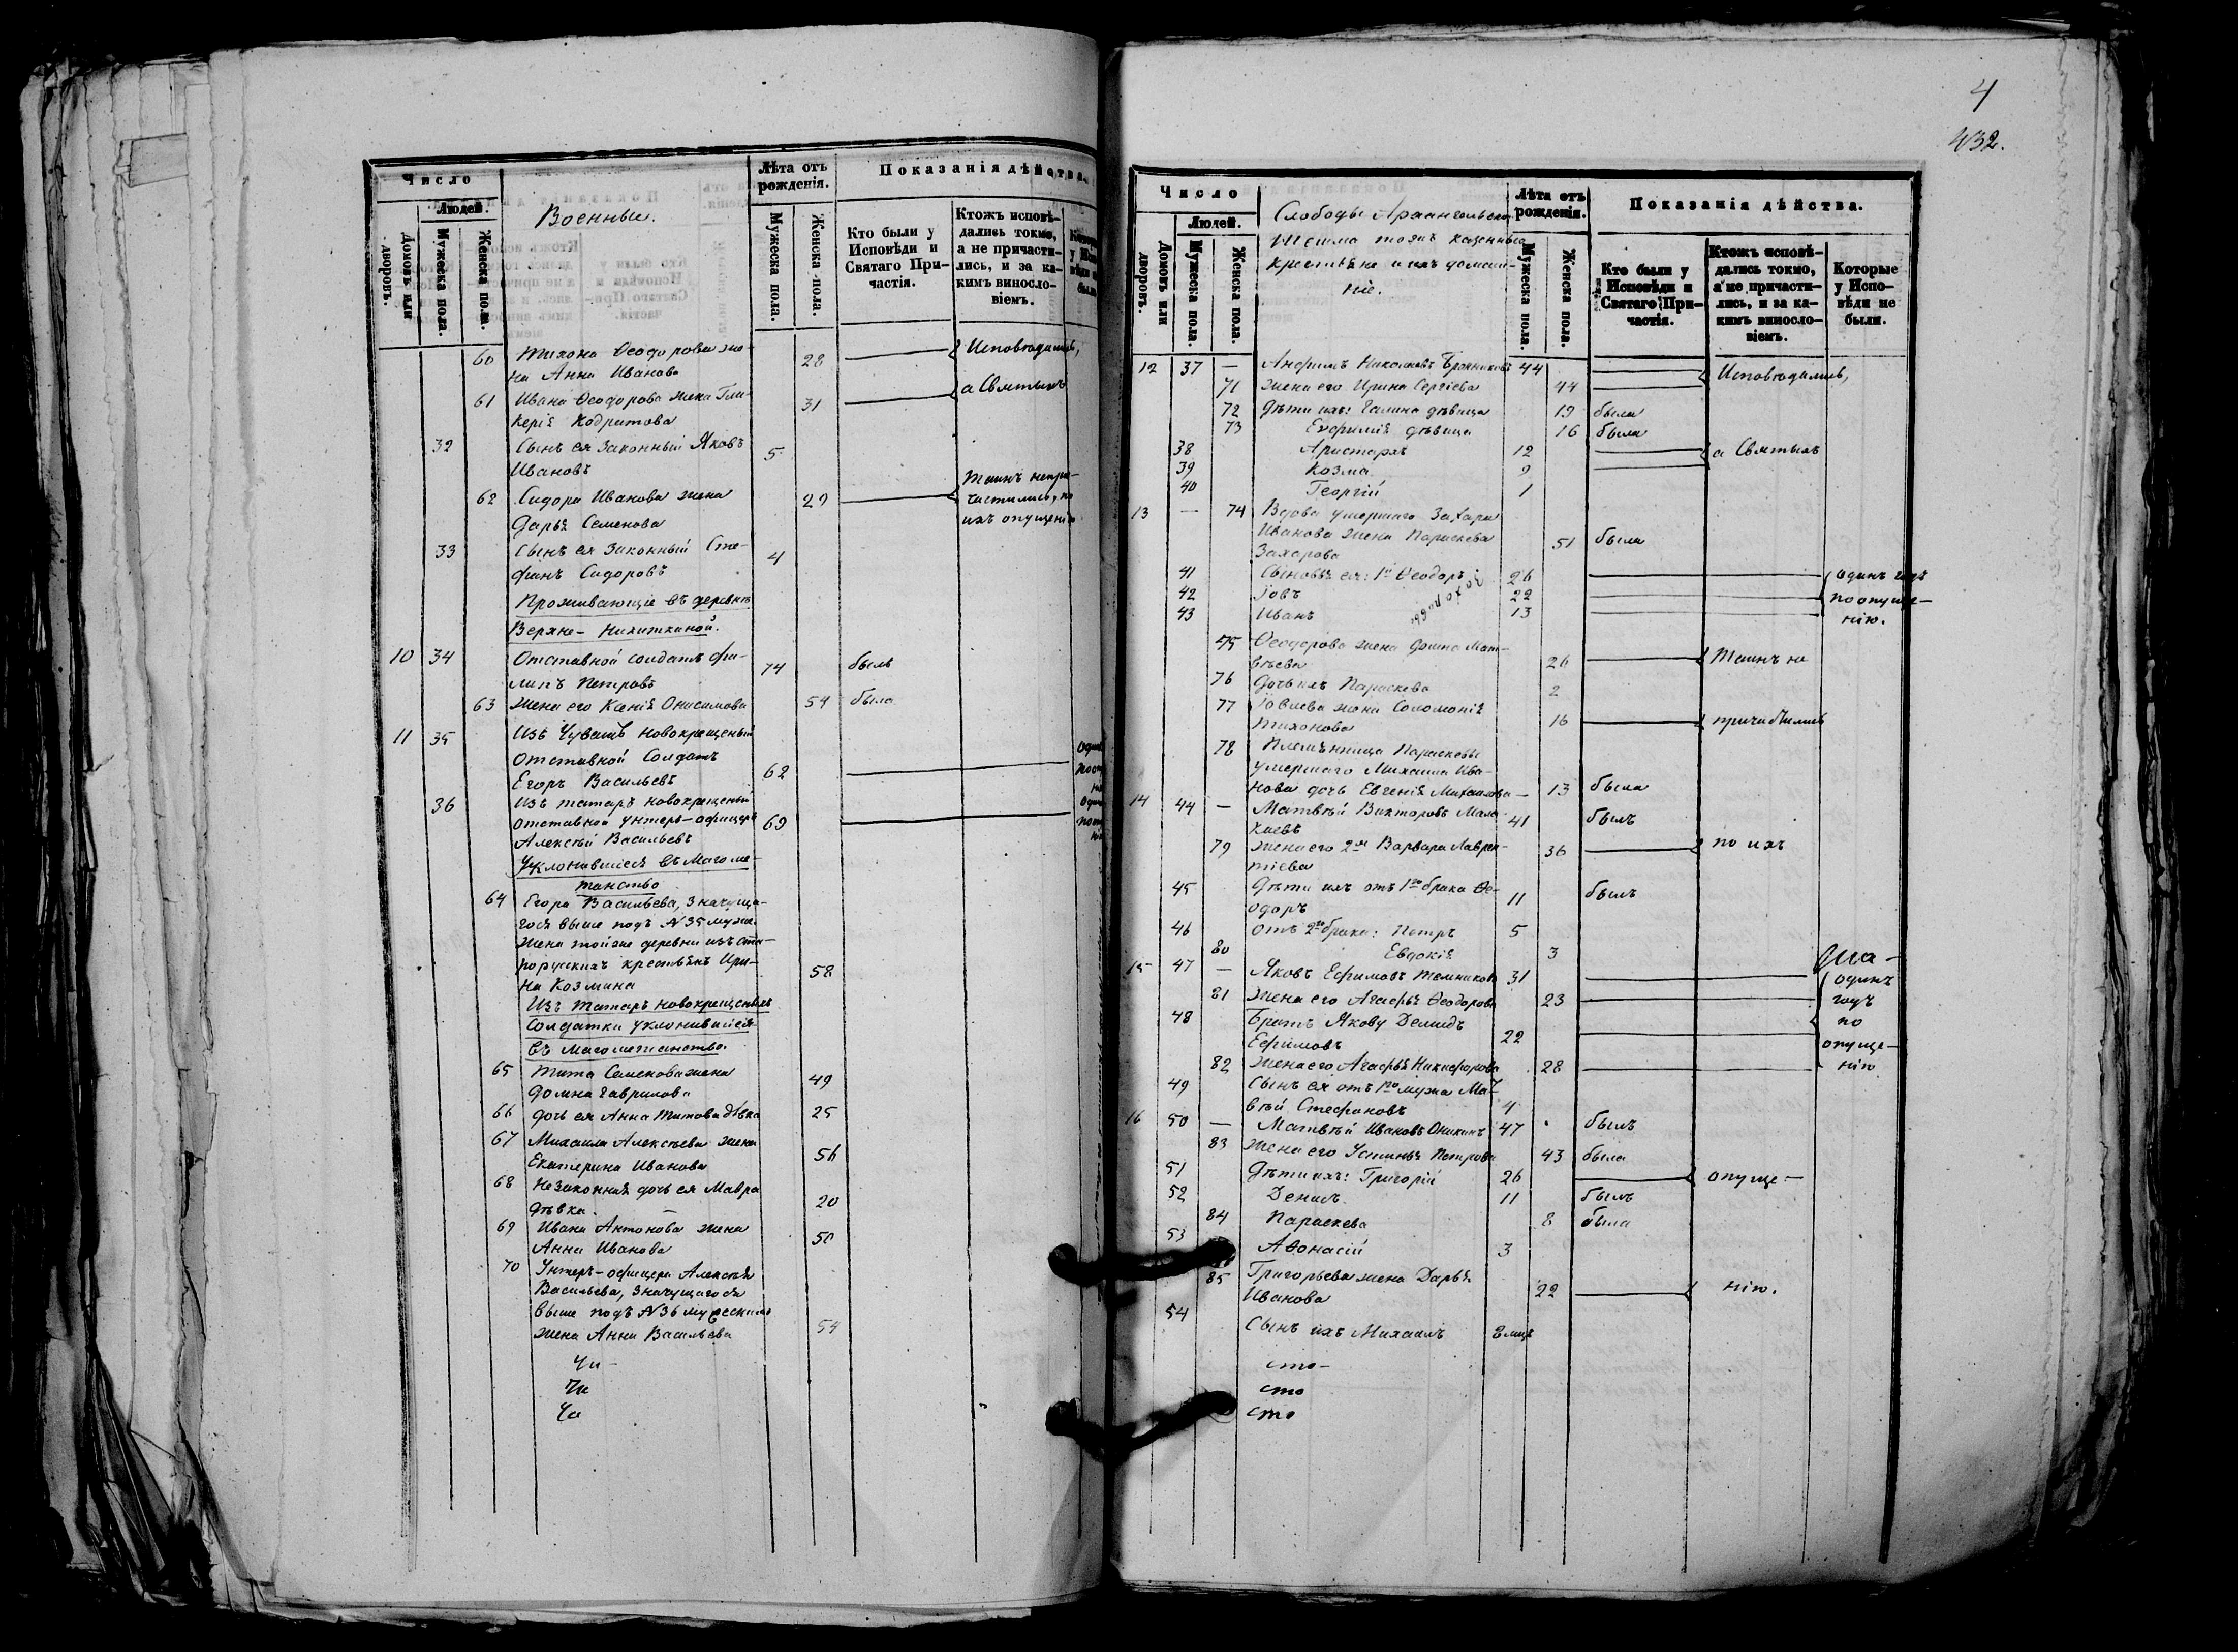 Число
Людей.
Домовъ или дворовъ.
Мужеска пола.
Женска пола.
Военные.
Лѣта отъ рожденія.
Мужеска пола.
Женска пола.
Показанія дѣйства.
Кто были у
Исповѣди и
Святаго При-
частія.
Ктожъ исповѣ-
дались токмо,
а не причасти-
лись, и за ка-
кимъ винослo-
віемъ.
60 Тихона Ѳеодорова же- 28 Исповѣдались,
на Анна Иванова
61 Ивана Ѳеодорова жена Гли- 31 а Святыхъ
керія Кодратова
32 Сынъ ея законный Яковъ 5
Ивановъ
62 Сидора Иванова жена 29 Таинъ непри-
частились, по
Дарья Семенова ихъ опущенію
33 Сынъ ея законный Сте- 4
фанъ Сидоровъ
Проживающіе въ деревнѣ
Верхне-Никиткиной.
10 34 Отставной солдатъ Фи- 74 былъ
липъ Петровъ
63 жена его Ксенія Онисимова 54 была
11 35 Изъ Чувашъ новокрещеный
отставной Солдатъ
Егоръ Васильевъ 62
36 Изъ татаръ новокрещеный
отставной унтеръ-офицеръ 69
Алексѣй Васильевъ
Уклонившіеся въ Магоме-
танство
64 Егора Васильева, значуща-
гося выше подъ №35 мужес.
жена тойже деревни изъ ста-
рорусскихъ крестьянъ Ири- 58
на Козмина
Изъ татаръ новокрещеныхъ
солдатки уклонившіеся
въ Магометанство.
65 Тита Семенова жена 49
Домна Гаврилова
66 дочь ея Анна Титова дѣвка 25
67 Михаила Алексѣева жена
Екатерина Иванова 56
68 Незаконная дочь ея Мавра
дѣвка. 20
69 Ивана Антонова жена
Анна Иванова 50
70 Унтеръ-офицера Алексѣя
Васильева, значущагося
выше подъ №36 мужескимъ
жена Анна Васильева 54
Чи-
Чи
Чи
4
432.
Число
Людей.
Домовъ или дворовъ.
Мужеска пола.
Женска пола.
Слободы Архангельской
казенные
крестьяне и ихъ домаш-
ніе.
Лѣта отъ рожденія.
Мужеска пола.
Женска пола.
Показанія дѣйства.
Кто были у
Исповѣди и
Святаго При-
частія.
Ктожъ исповѣ-
дались токмо,
а не причасти-
лись, и за ка-
кимъ винослo-
віемъ.
Которые
у Испо-
вѣди не
были.
12 37 — Анфимъ Николаевъ 44 Исповѣдались,
71 жена его Ирина Сергіева 44
72 Дѣти ихъ: Галина дѣвица 19 была
73 Евфимія дѣвица 16 была
38 Аристархъ 12 а Святыхъ
39 Козма 9
40 Георгій 1
13 — 74 Вдова умершаго Захара
Иванова жена Параскева 51 была
Захарова
41 Сыновья ея: 1й Ѳеодоръ 26 одинъ годъ
42 Іовъ 22 по опуще-
43 Иванъ 13 нію.
Захаровы
75 Ѳеодорова жена Домна Мат-
вѣева 26 Таинъ не
76 Дочь ихъ Параскева 2
77 Іовлева жена Соломонія
Тихонова 16 причастились
78 Племянница Параскевы
умершаго Михаила Ива-
нова дочь Евгенія Михаилова — 13 была
14 44 — Матвѣй Викторовъ Мала- 41 былъ
хаевъ
79 Жена его 2я Варвара Лаврен- 36 по ихъ
тіева
45 Дѣти ихъ отъ 1го брака Ѳе- 11 былъ
одоръ
46 отъ 2го брака: Петръ 5
80 Евдокія 3
15 47 — Яковъ Ефимовъ Темниковъ 31 одинъ
81 жена его Агафья Ѳеодорова 23 годъ
48 Братъ Якову Демидъ по
Ефимовъ 22 опуще-
82 Жена его Агафья Никифорова 28 нію
49 Сынъ ея отъ 1го мужа Мат-
вѣй Стефановъ 4
16 50 — Матвѣй Ивановъ Оникинъ 47 былъ
83 жена его Устинья Петрова 43 была
51 Дѣти ихъ: Григорій 26 опуще-
52 Денисъ 11 былъ
84 Параскева 8 была
53 Аѳонасій 3
85 Григорьева жена Дарья
Иванова 22 нію.
54 Сынъ ихъ Михаилъ 2 мцъ
сто-
сто
сто